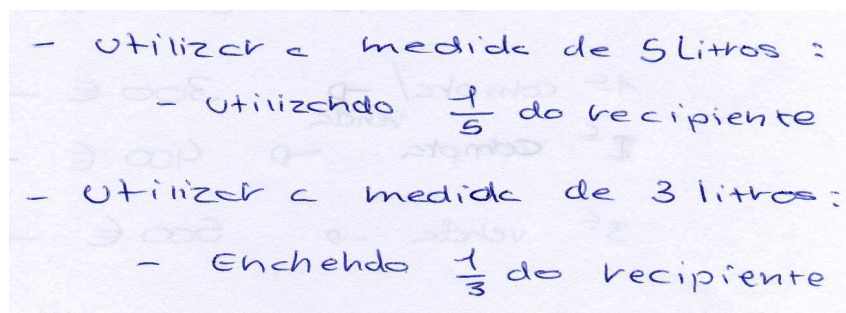 - Utilizar a medida de 5 Litros :
- Utilizando 1/5 do recipiente
- Utilizar a medida de 3 litros :
- Enchendo 1/3 do recipiente